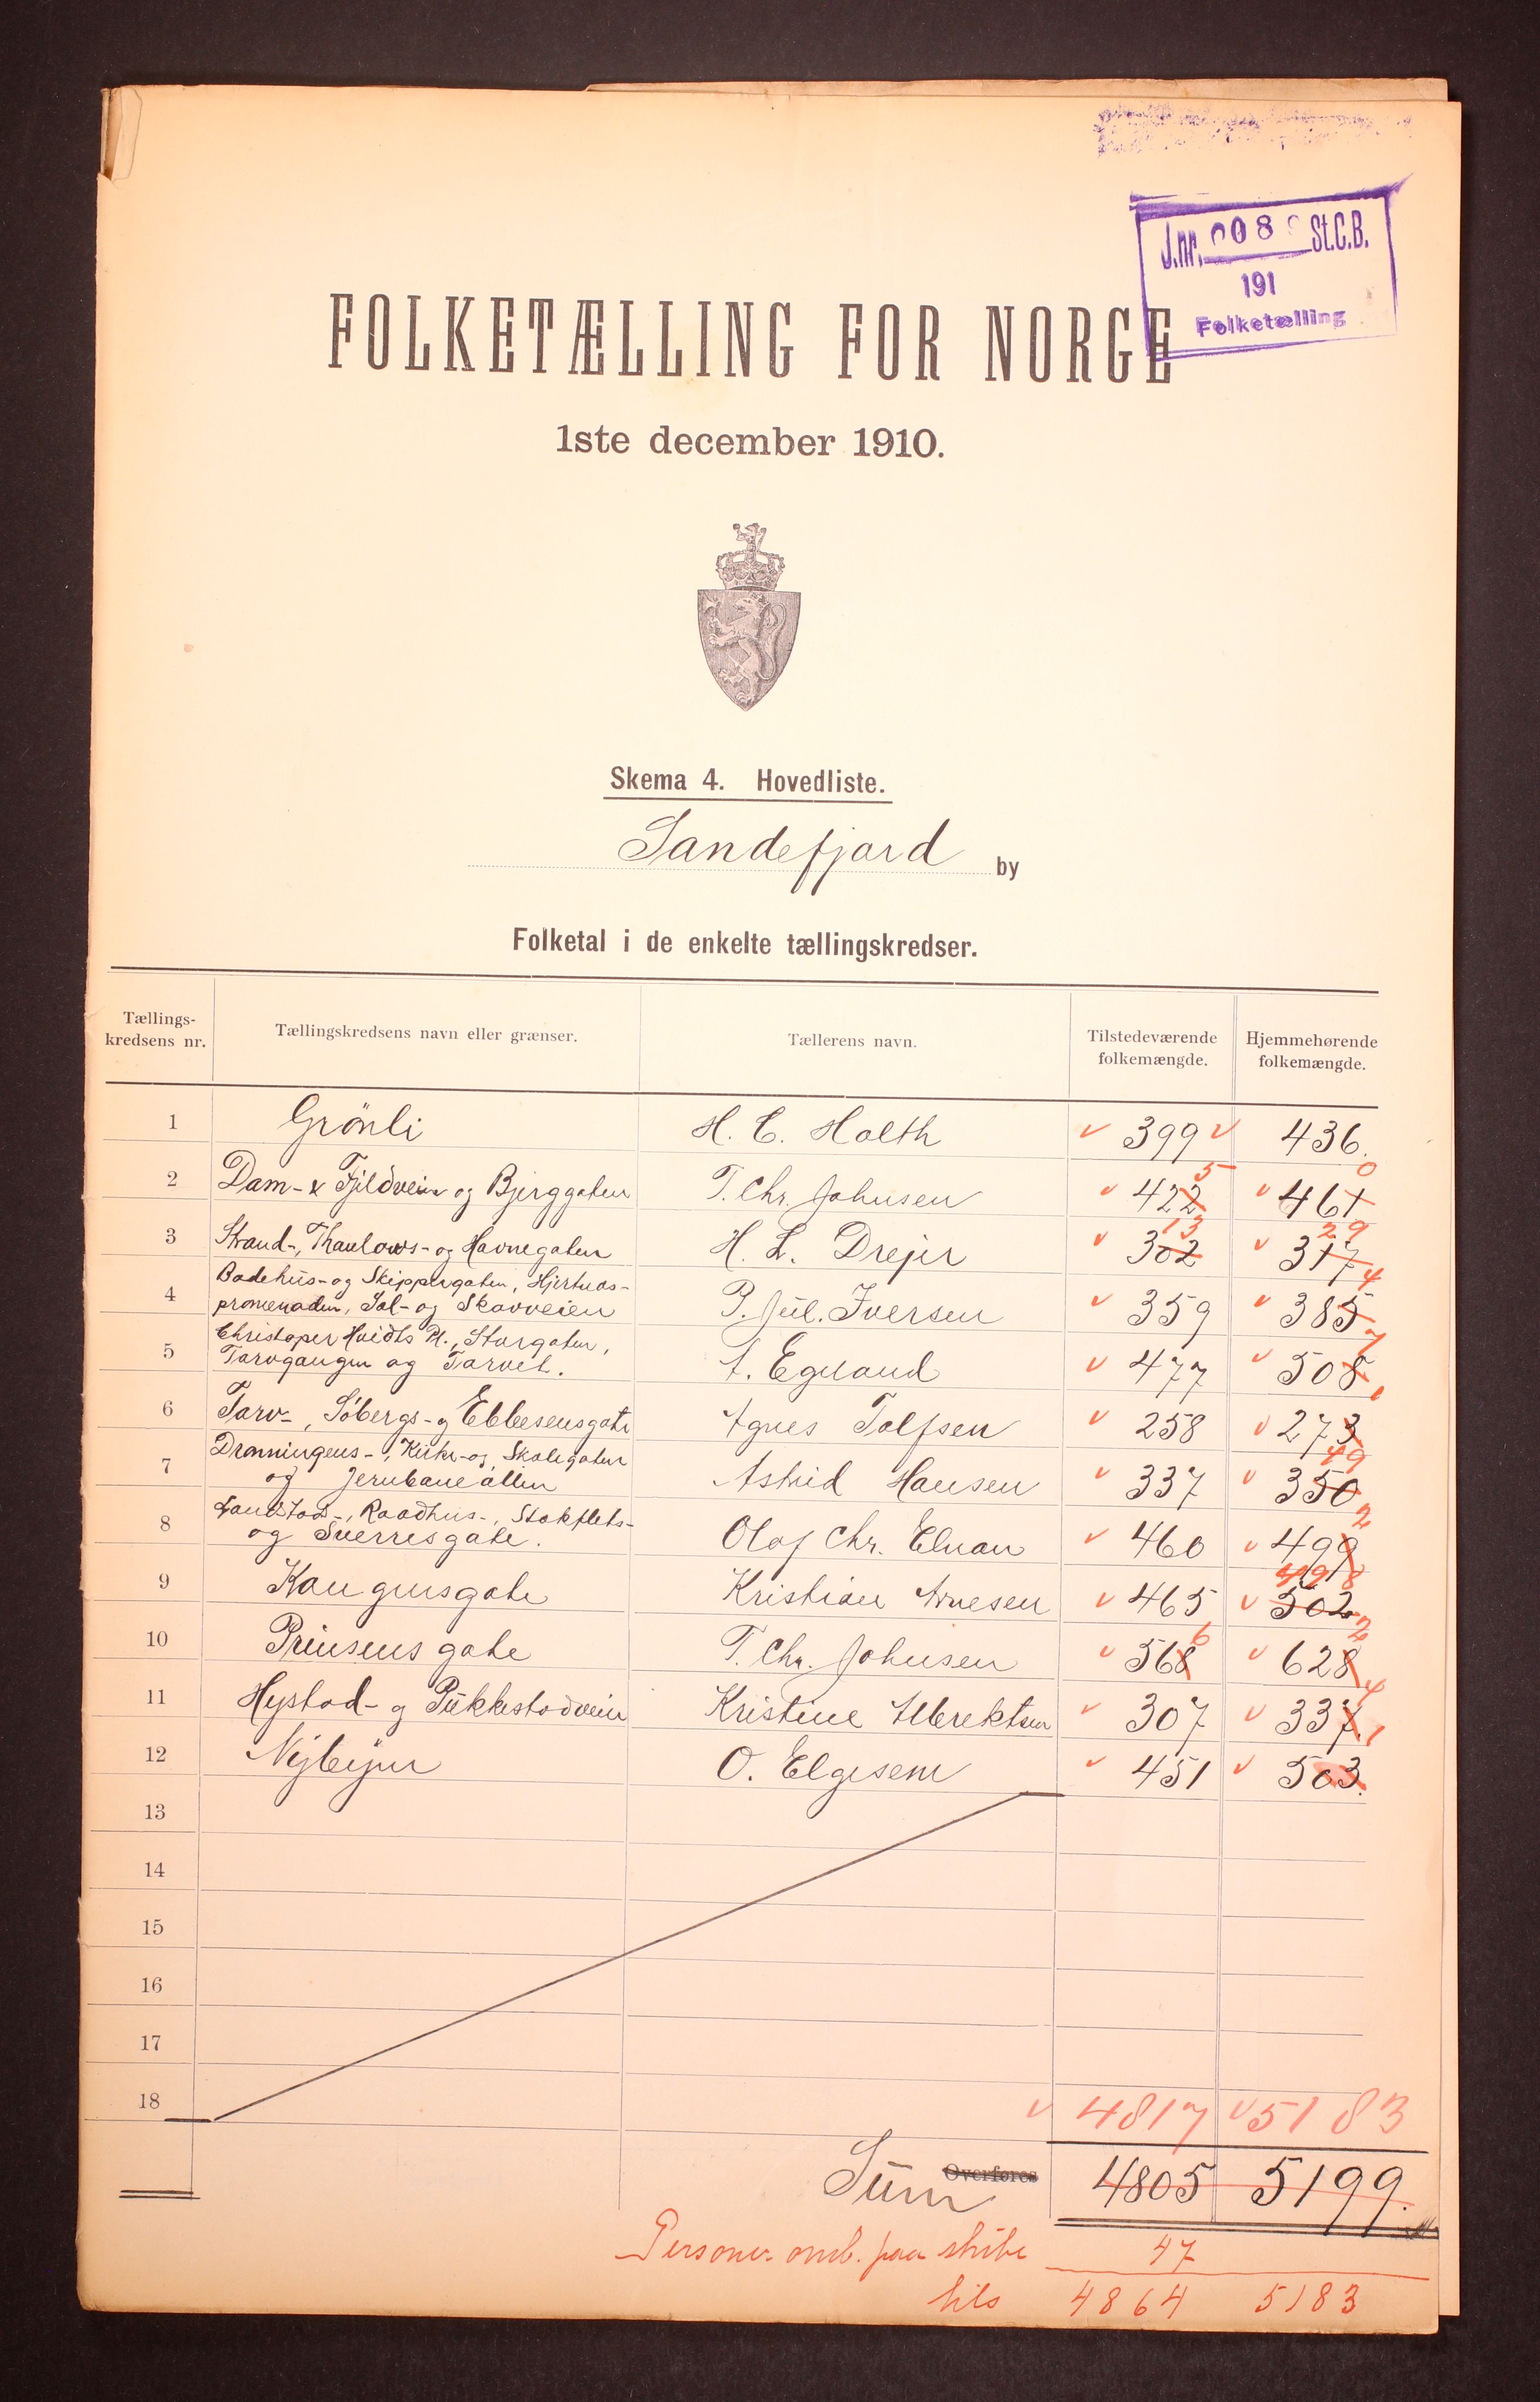 J.nr. 008 St.C.B.
191
Folketælling
FOLKETÆLLING FOR NORGE
1ste december 1910.
Skema 4. Hovedliste.
Sandefjord by
Folketal i de enkelte tællingskredser.
Tællings-
kredsens nr.
Tællingskredsens navn eller grænser.
Tællerens navn.
Tilstedeværende
folkemængde.
Hjemmehørende
folkemængde.
1 Grönli H. C. Holth 399 436.
2 Dam- & Fjeldveien og Bjerggaten T. Chr. Johnsen 422 5 461 0
3 Strand-, Thaulows- og Havnegaten H. L. Drejer 302 13 317 29
4 Badehus- og Skippergaten, Hjertnes-
promenaden, Sol- og Skovveien P. Jul. Iversen 359 385 4
5 Christoper Hvidts Pl., Storgaten,
Torvgangen og Torvet. A. Egeland 477 508 7
6 Torv-, Söbergs- og Ebbesensgate Agnes Tolfsen 258 273 1
7 Dronningens-, Kirke- og Skolegaten
og Jernbanealleen Astrid Hansen 337 350 49
8 Landstads-, Raadhus-, Stokflets-
og Sverresgate. Olaf Chr. Elnan 460 499 2
9 Kongensgate Kristian Arnesen 465 502 498
10 Prinsens gate T. Chr. Johnsen 568 6 628 2
11 Hystad- og Pukkestadveien Kristine Albrektsen 307 337. 4
12 Nybyen O. Elgesem 451 503. 1
13
14
15
16
17
18
4817 5183
Sum Overføres 4805 5199.
Personer omb. paa skibe 47
tils 4864 5183